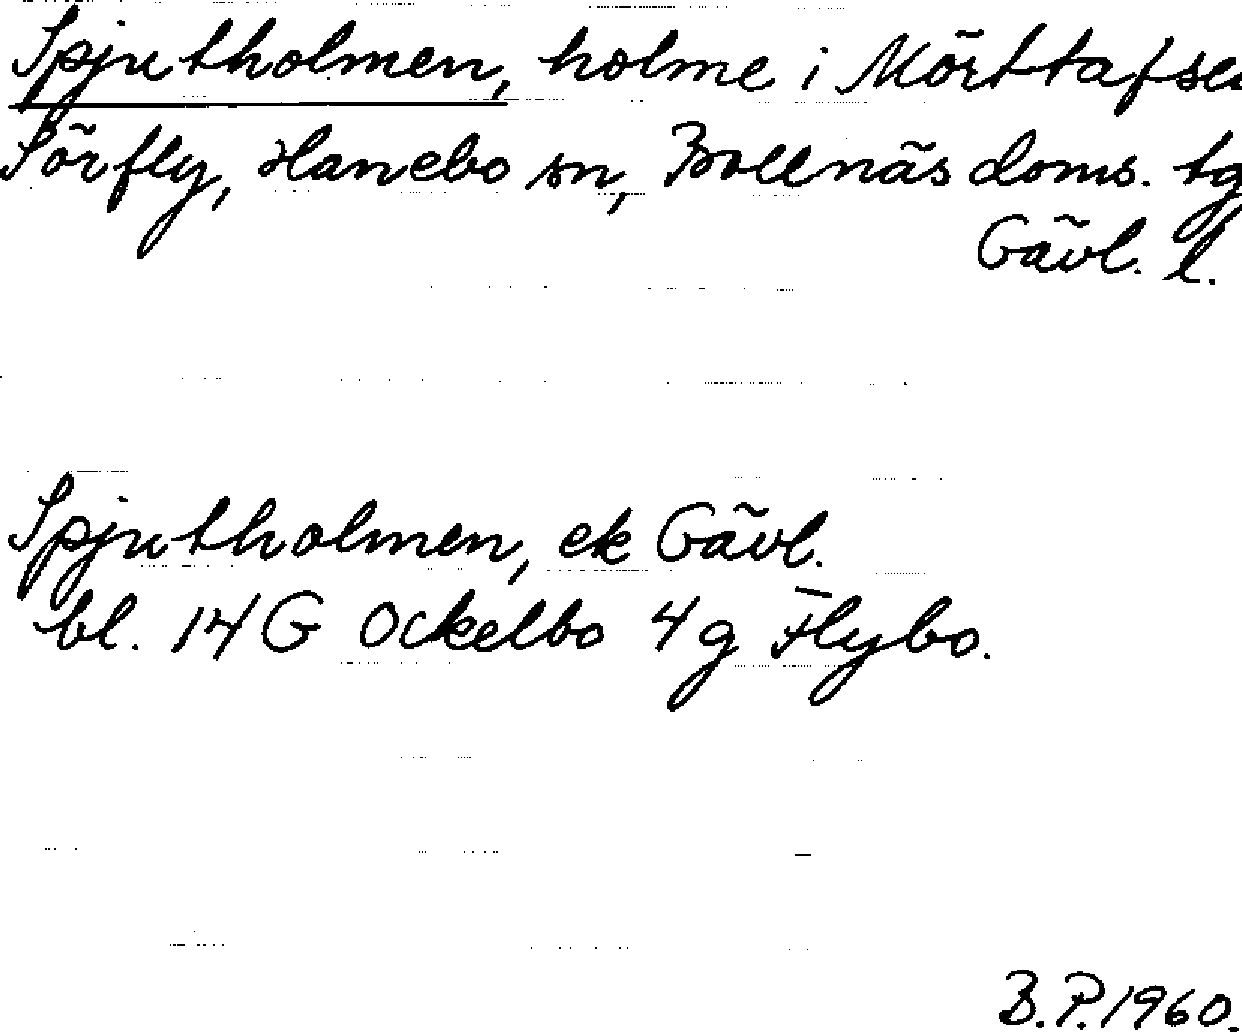 Spjutholmen, holme i Mörttafsen
Sörfly, Hanebo sn, Bollnäs doms. tg
Gävl. l.
Spjutholmen, ek Gävl.
bl. 14 G Ockelbo 4 g Flybo.
B.P. 1960.